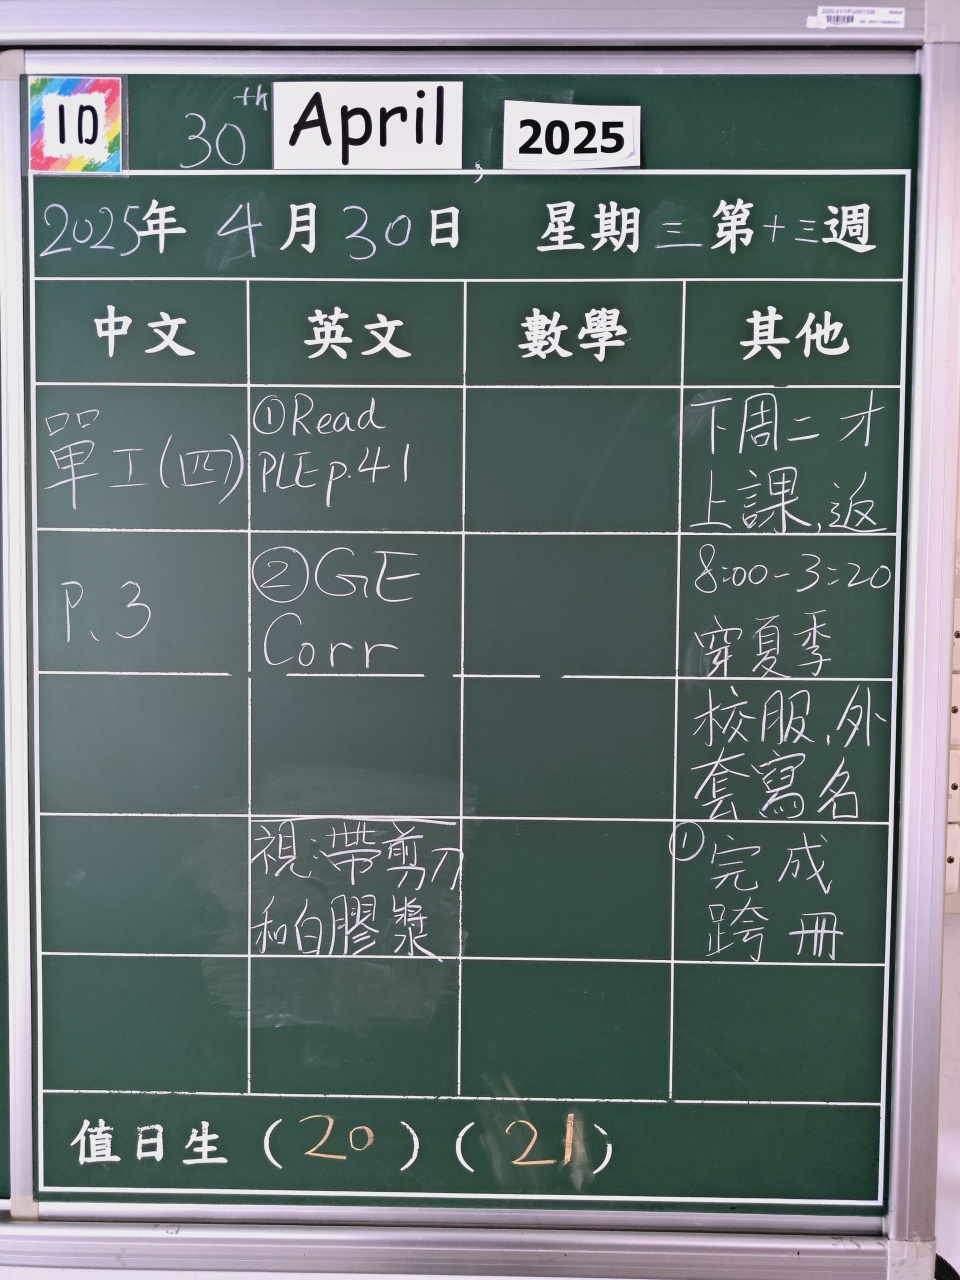 1D
30th April 2025
2025年 4月 30日 星期三 第十三週
中文 英文 數學 其他
單工(四)
P.3
①Read
PLE p.41
②GE
Corr
視:帶剪刀
和白膠漿
下周二才
上課,返
8:00-3:20
穿夏季
校服,外
套寫名
①完成
跨冊
值日生 (20) (21)